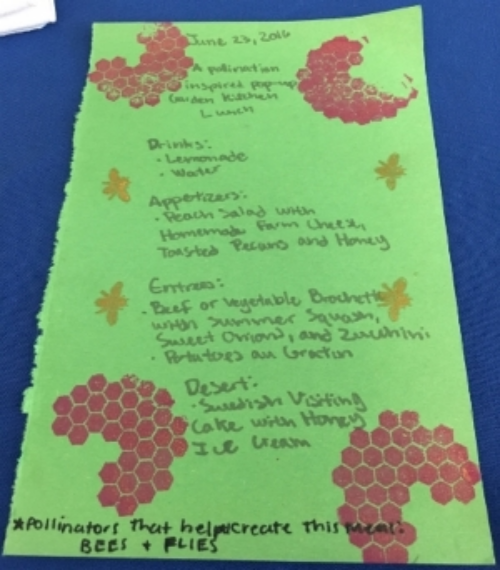 June 23, 2016
A pollination
inspired pop-up
Garden Kitchen
Lunch
Drinks:
• Lemonade
• Water
Appetizers:
• Peach Salad with
Homemade Farm Cheese,
Toasted Pecans and Honey
Entrees:
• Beef or Vegetable Brochette
with Summer Squash,
Sweet Onions, and Zucchini
• Potatoes au Gratin
Desert:
• Swedish Visiting
Cake with Honey
Ice Cream
*Pollinators that help create this meal:
BEES + FLIES